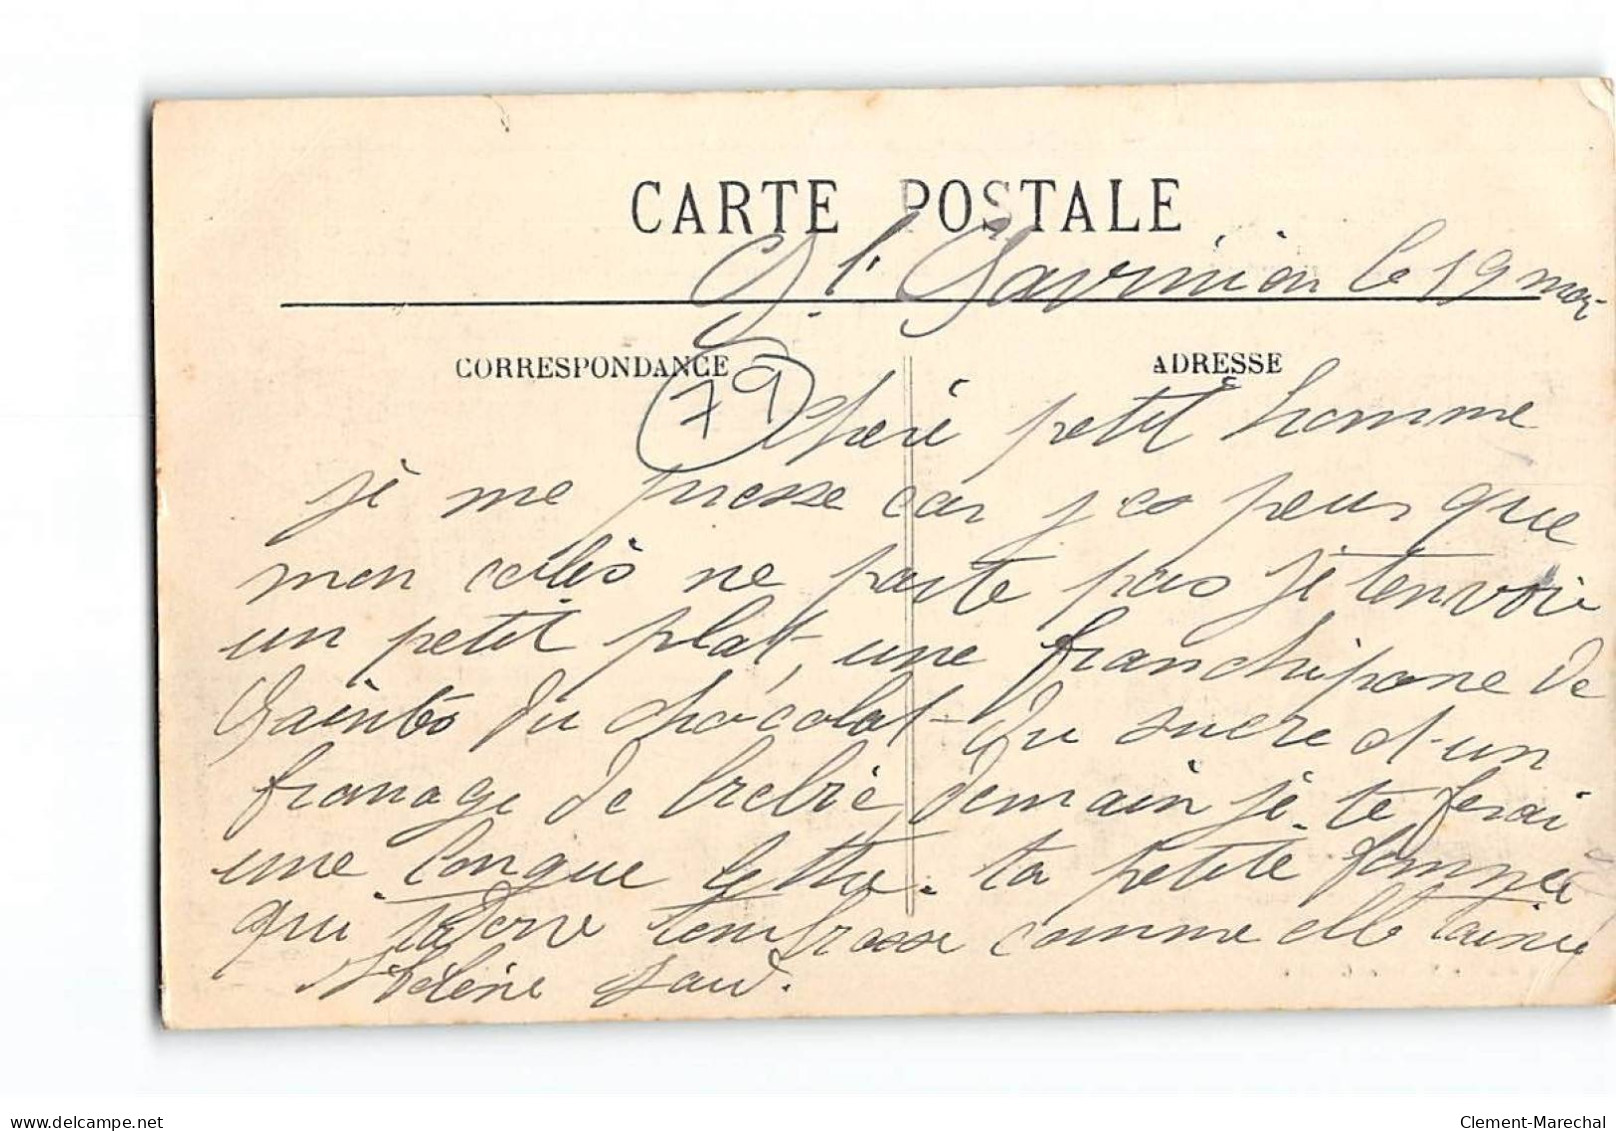 CARTE POSTALE
St Savinien le 19 mai
CORRESPONDANCE
ADRESSE
79
cheri petit homme
je me presse car j'es peur que
mon colis ne parte pas je t'envoie
un petit plat, une franchipane de
Saintes du chocolat du sucre et un
fromage de brebie, demain je te ferai
une longue lettre. ta petite femme
qui t'adore t'embrasse comme elle t'aime
Hélène
delcampe.net
Clement-Marechal